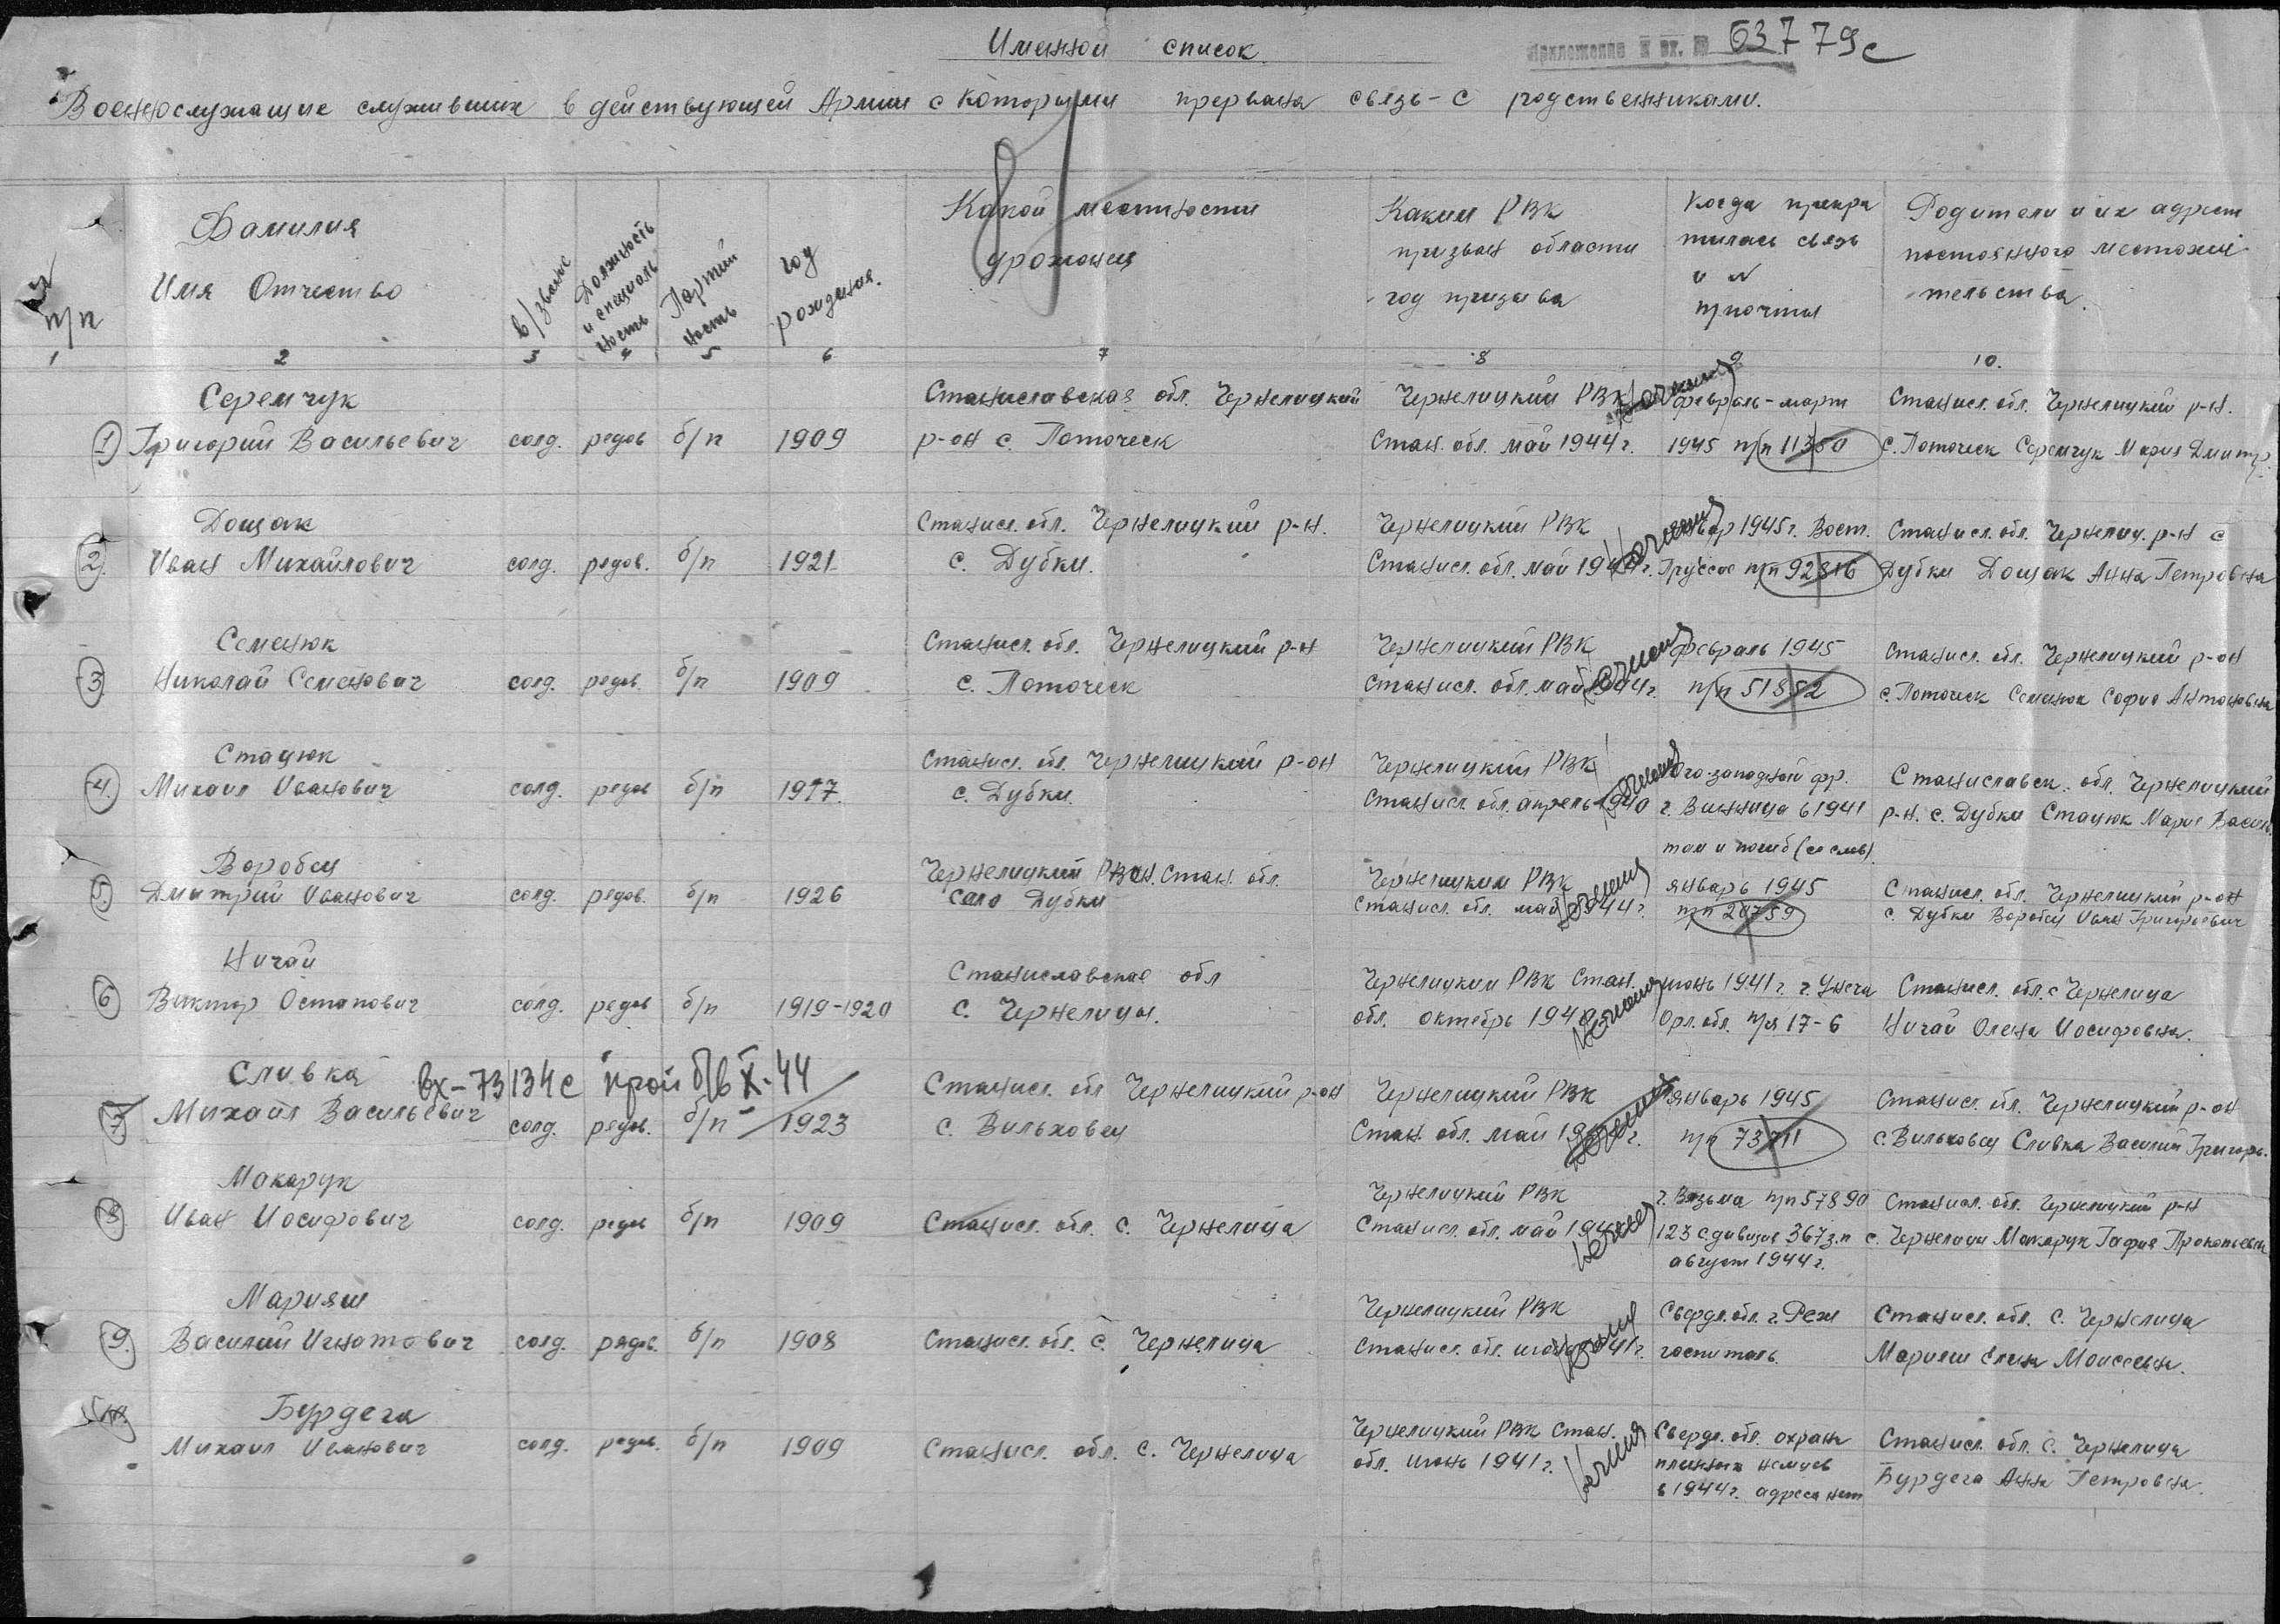 Именной список
Приложение к вх. № 63779с
Военнослужащие служивших в действующей Армии с которыми прервана связь - с родственниками.
№ п/п
Фамилия
Имя Отчество
в/звание
Должность и специальность
Партийность
год рождения.
Какой местности урожонец
Каким РВК
призван области
год призыва
Когда прекра
тилась связь
и №
п/почты
Родители и их адрес
постоянного местожи
тельства.
1 2 3 4 5 6 7 8 9 10.
Серемчук Станиславская обл. Чернелицкий Чернелицкий РВК февраль-март Станисл. обл. Чернелицкий р-н.
1 Григорий Васильевич солд. редов б/п 1909 р-он с. Поточеск Стан. обл. май 1944 г. 1945 п/п 11350 с. Поточеск Серемчук Мария Дмитр.
Дощак Станисл. обл. Чернелицкий р-н. Чернелицкий РВК 1945 г. Вост. Станисл. обл. Чернелиц. р-н с
2. Иван Михайлович солд. редов. б/п 1921 с. Дубки. Станисл. обл. май 1944 г. Пруссия п/п 92816 Дубки Дощак Анна Петровна
Семенюк Станисл. обл. Чернелицкий р-н Чернелицкий РВК февраль 1945 Станисл. обл. Чернелицкий р-он
3 Николай Семенович солд. редов. б/п 1909 с. Поточеск Станисл. обл. май 1944 г. п/п 51852 с. Поточеск Семенюк София Антоновна
Стацюк Станисл. обл. Чернелицкий р-он Чернелицкий РВК Юго-западной фр. Станиславск. обл. Чернелицкий
4. Михаил Иванович солд. редов б/п 1917. с. Дубки. Станисл. обл. апрель 1940 г. Винница в 1941 р-н. с. Дубки Стацюк Мария Василь.
там и погиб (со слов)
Воробец Чернелицкий Р-он. Стан. обл. Чернелицким РВК январь 1945 Станисл. обл. Чернелицкий р-он
5. Дмитрий Иванович солд. редов. б/п 1926 село Дубки Станисл. обл. май 1944 г. п/п 20759 с. Дубки Воробец Иван Григорьевич
Ничай Станиславская обл Чернелицким РВК Стан. июнь 1941 г. г. Унеча Станисл. обл. с Чернелица
6 Виктор Остапович солд. редов б/п 1919-1920 с. Чернелица. обл. октябрь 1940 Орл. обл. п/я 17-6 Ничай Олена Иосифовна.
Сливка вх-73134с прой б/в X-44 Станисл. обл Чернелицкий р-он Чернелицкий РВК январь 1945 Станисл. обл. Чернелицкий р-он
7. Михаил Васильевич солд. редов. б/п 1923 с. Вильховец Стан. обл. май 1944 г. п/п 73711 с. Вильховец Сливка Василий Григорь.
Макарук Чернелицкий РВК г. Вязьма п/п 57890 Станисл. обл. Чернелицкий р-н
8. Иван Иосифович солд. редов б/п 1909 Станисл. обл. с. Чернелица Станисл. обл. май 1944 123 с. дивизия 367 з.п с. Чернелица Макарук Гафия Прокопьевна
август 1944 г.
Марияш Чернелицкий РВК Свердл. обл. г. Реж Станисл. обл. с. Чернелица
9. Василий Игнатович солд. рядов. б/п 1908 Станисл. обл. с. Чернелица Станисл. обл. июнь 1941 г. госпиталь. Марияш Елена Моисеевна.
Бурдега Чернелицкий РВК Стан. Свердл. обл. охрана Станисл. обл. с. Чернелица
10. Михаил Иванович солд. редов. б/п 1909 Станисл. обл. с. Чернелица обл. июнь 1941 г. пленных немцев Бурдега Анна Петровна.
в 1944 г. адреса нет